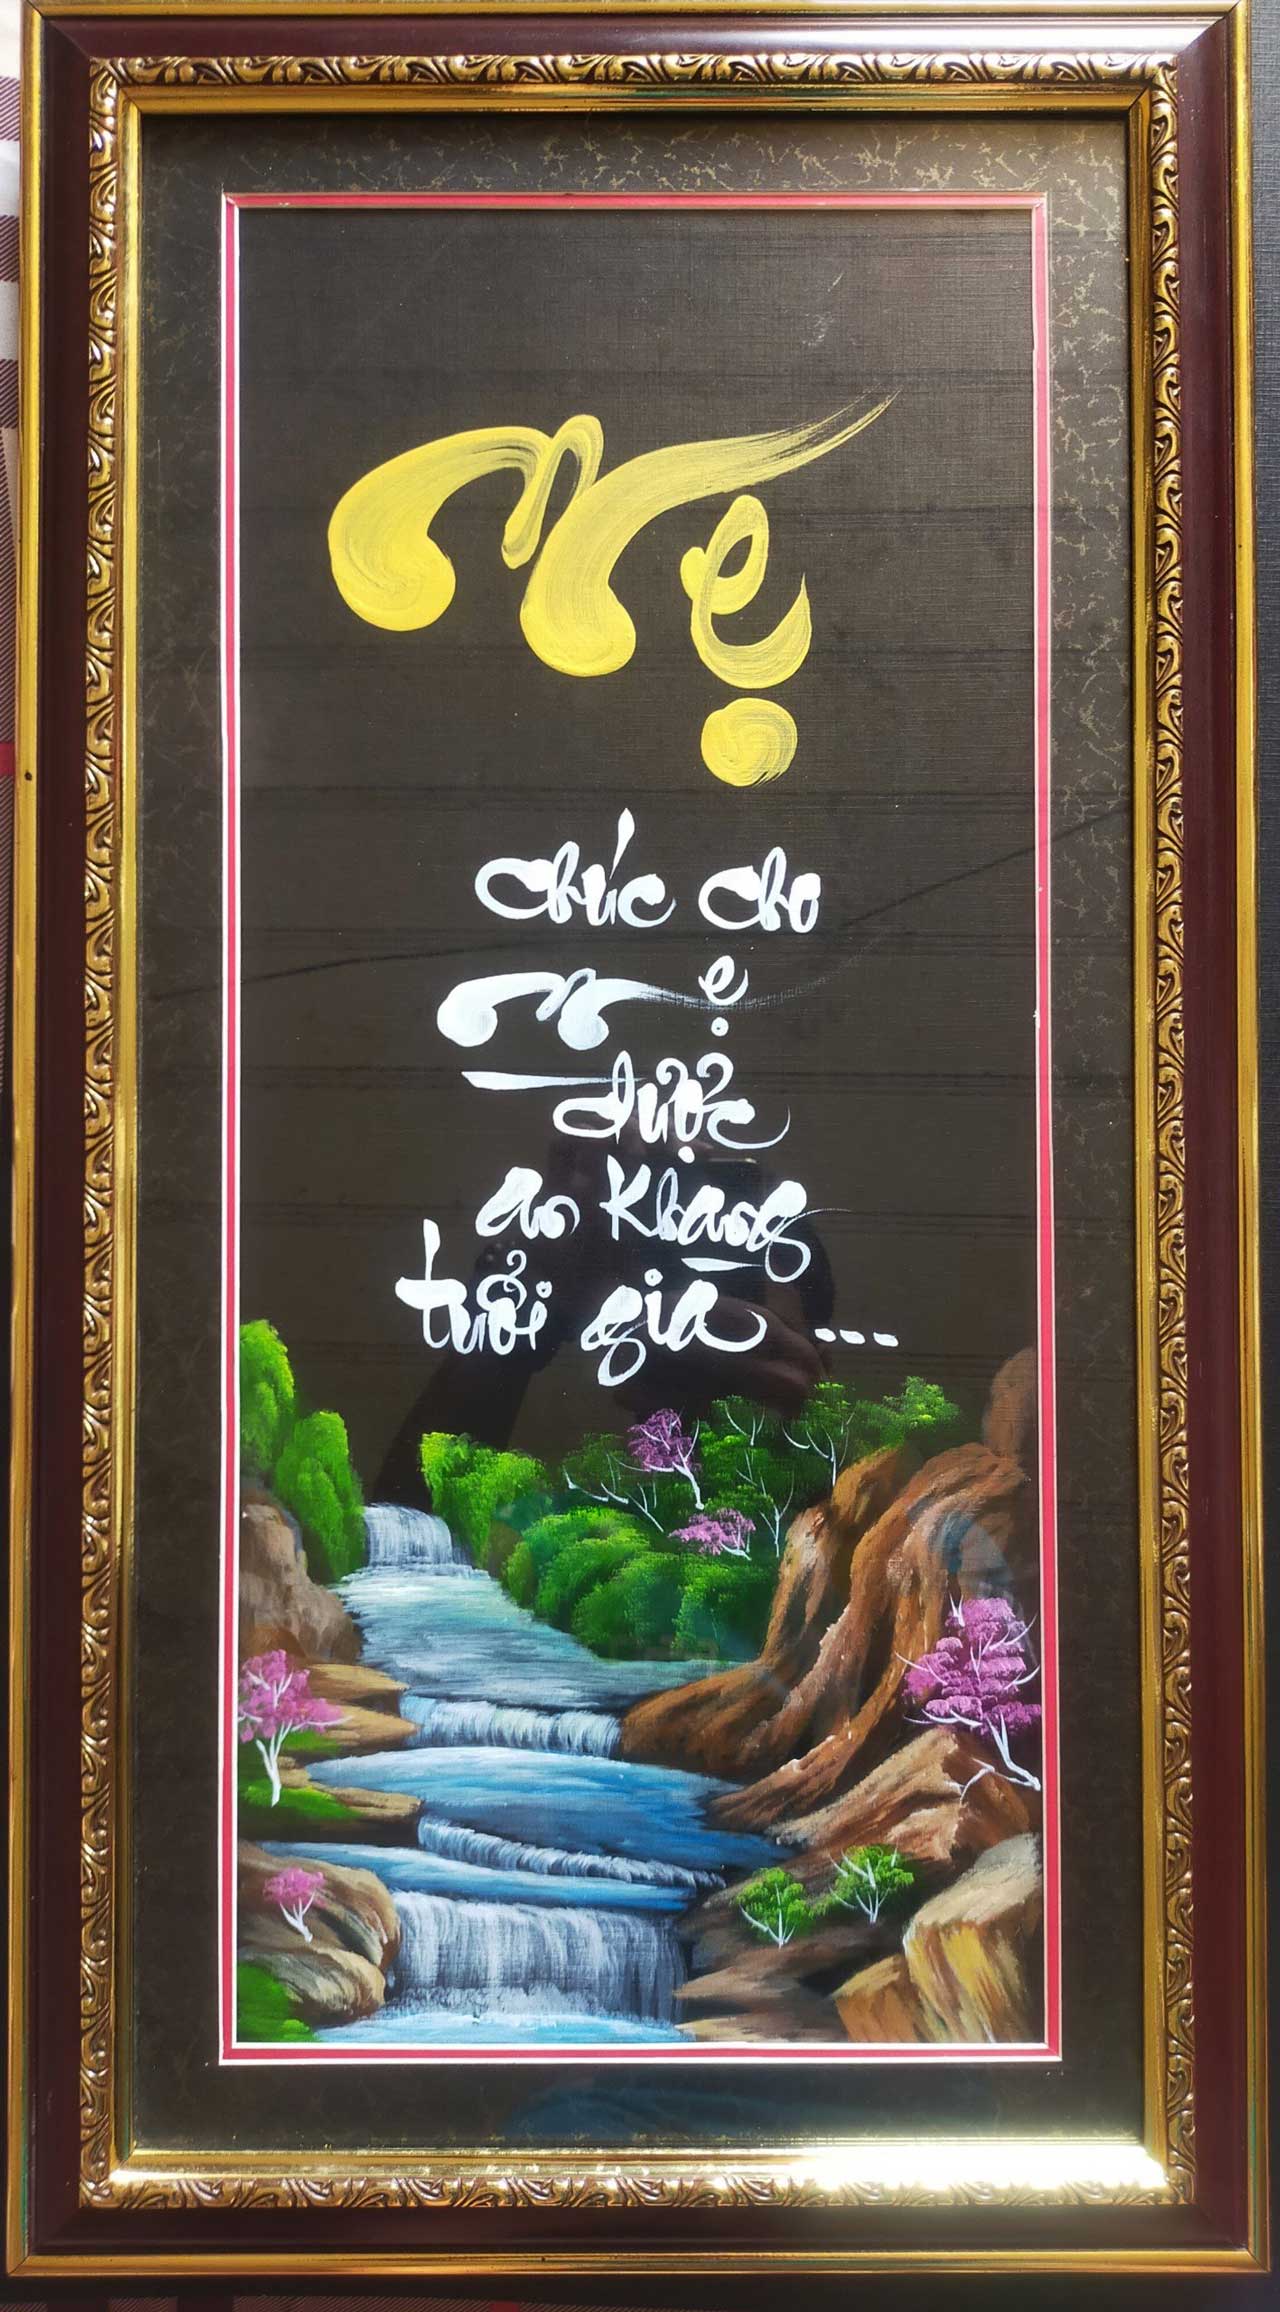 Mẹ
Chúc Cho
Mẹ
được
an Khang
tuổi già ...